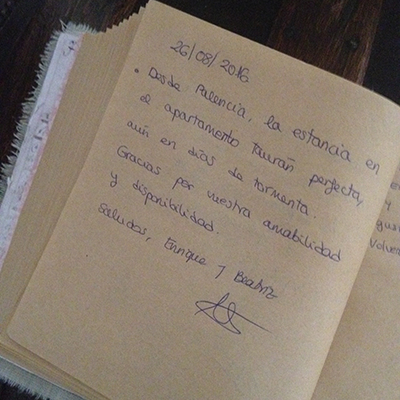 26/08/2016
• Desde Palencia, la estancia en
el apartamento Taurán perfecta,
aún en días de tormenta.
Gracias por vuestra amabilidad
y disponibilidad.
Saludos, Enrique y Beatriz
y